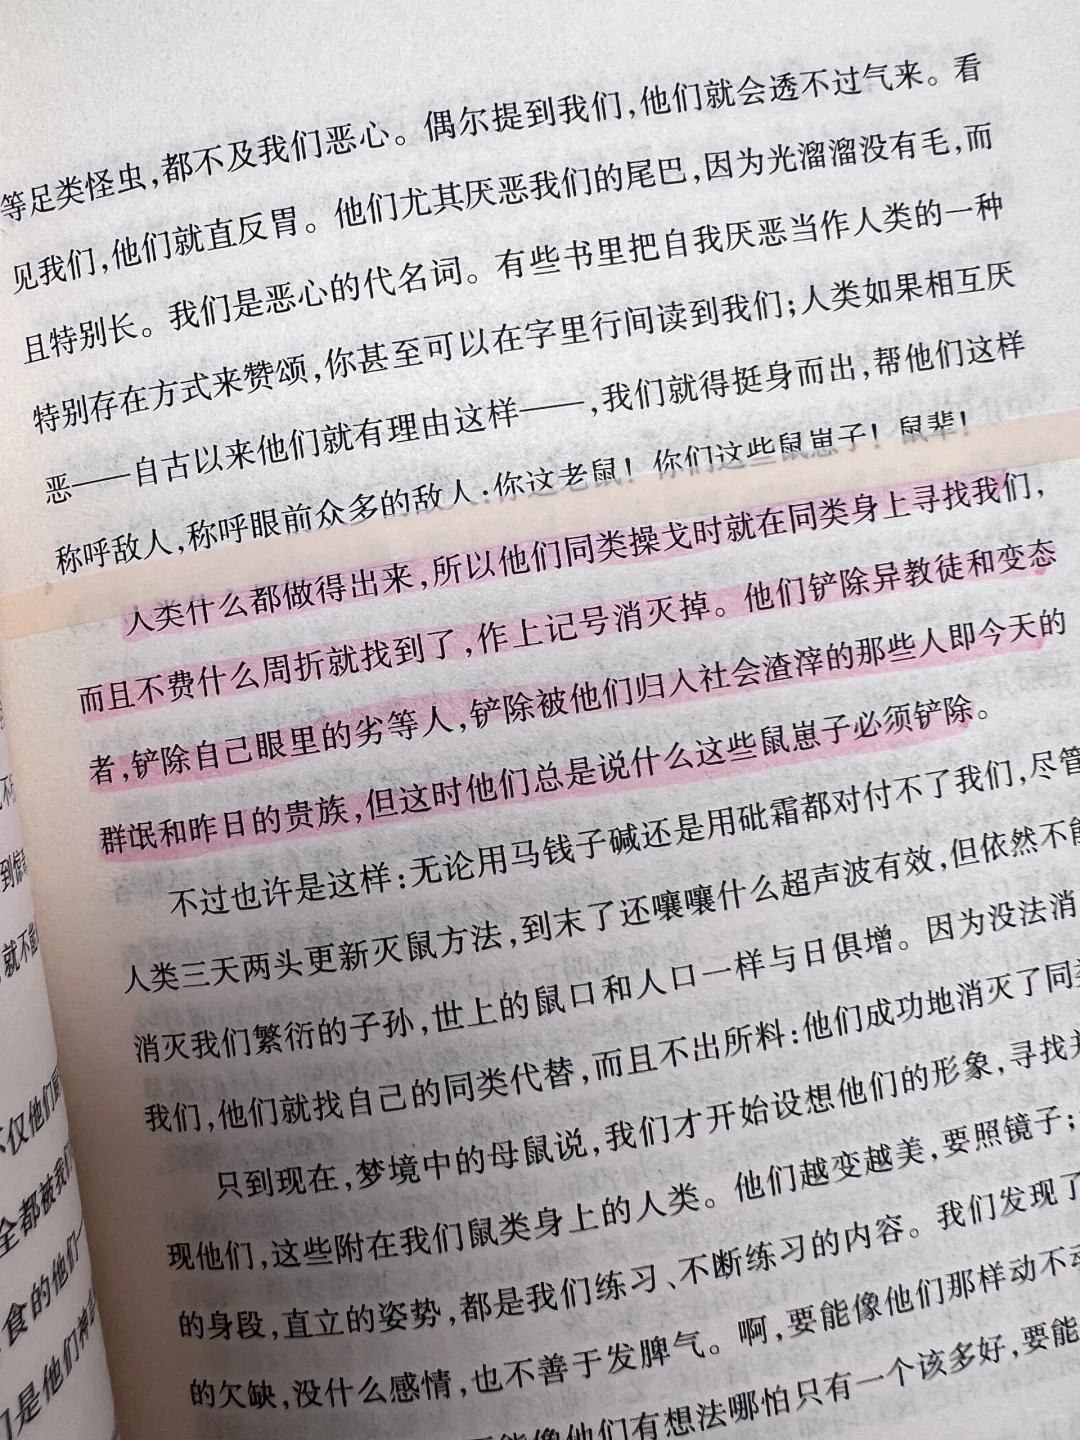 等足类怪虫，都不及我们恶心。偶尔提到我们，他们就会透不过气来。看
见我们，他们就直反胃。他们尤其厌恶我们的尾巴，因为光溜溜没有毛，而
且特别长。我们是恶心的代名词。有些书里把自我厌恶当作人类的一种
特别存在方式来赞颂，你甚至可以在字里行间读到我们；人类如果相互厌
恶——自古以来他们就有理由这样——，我们就得挺身而出，帮他们这样
称呼敌人，称呼眼前众多的敌人：你这老鼠！你们这些鼠崽子！鼠辈！
人类什么都做得出来，所以他们同类操戈时就在同类身上寻找我们，
而且不费什么周折就找到了，作上记号消灭掉。他们铲除异教徒和变态
者，铲除自己眼里的劣等人，铲除被他们归入社会渣滓的那些人即今天的
群氓和昨日的贵族，但这时他们总是说什么这些鼠崽子必须铲除。
不过也许是这样：无论用马钱子碱还是用砒霜都对付不了我们，尽管
人类三天两头更新灭鼠方法，到末了还嚷嚷什么超声波有效，但依然不能
消灭我们繁衍的子孙，世上的鼠口和人口一样与日俱增。因为没法消
我们，他们就找自己的同类代替，而且不出所料：他们成功地消灭了同类
只到现在，梦境中的母鼠说，我们才开始设想他们的形象，寻找并
现他们，这些附在我们鼠类身上的人类。他们越变越美，要照镜子；
的身段，直立的姿势，都是我们练习、不断练习的内容。我们发现了
的欠缺，没什么感情，也不善于发脾气。啊，要能像他们那样动不动
能像他们有想法哪怕只有一个该多好，要能
到惊
就不能
仅他们
全都被我们
食的他们
是他们神